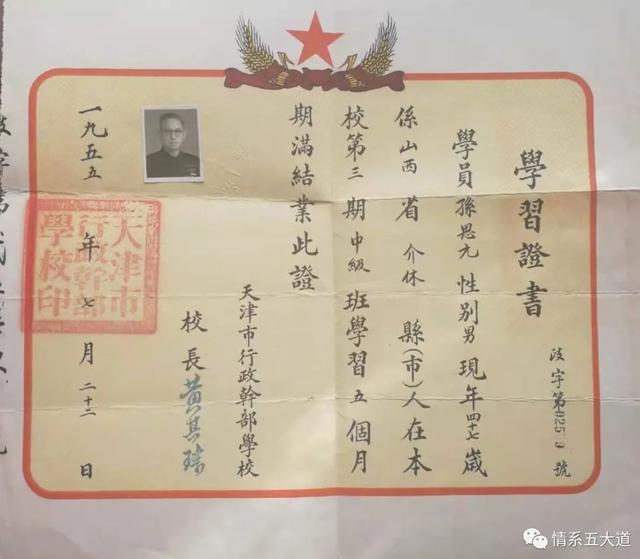 學習證書
字第0259號
學員孫恩元性別男現年四十七歲
係山西省介休縣(市)人在本
校第三期中級班學習五個月
期滿結業此證
天津市行政幹部學校
校長黃其瑞
一九五五年七月二十二日
天津市
行政幹部
學校印
情系五大道